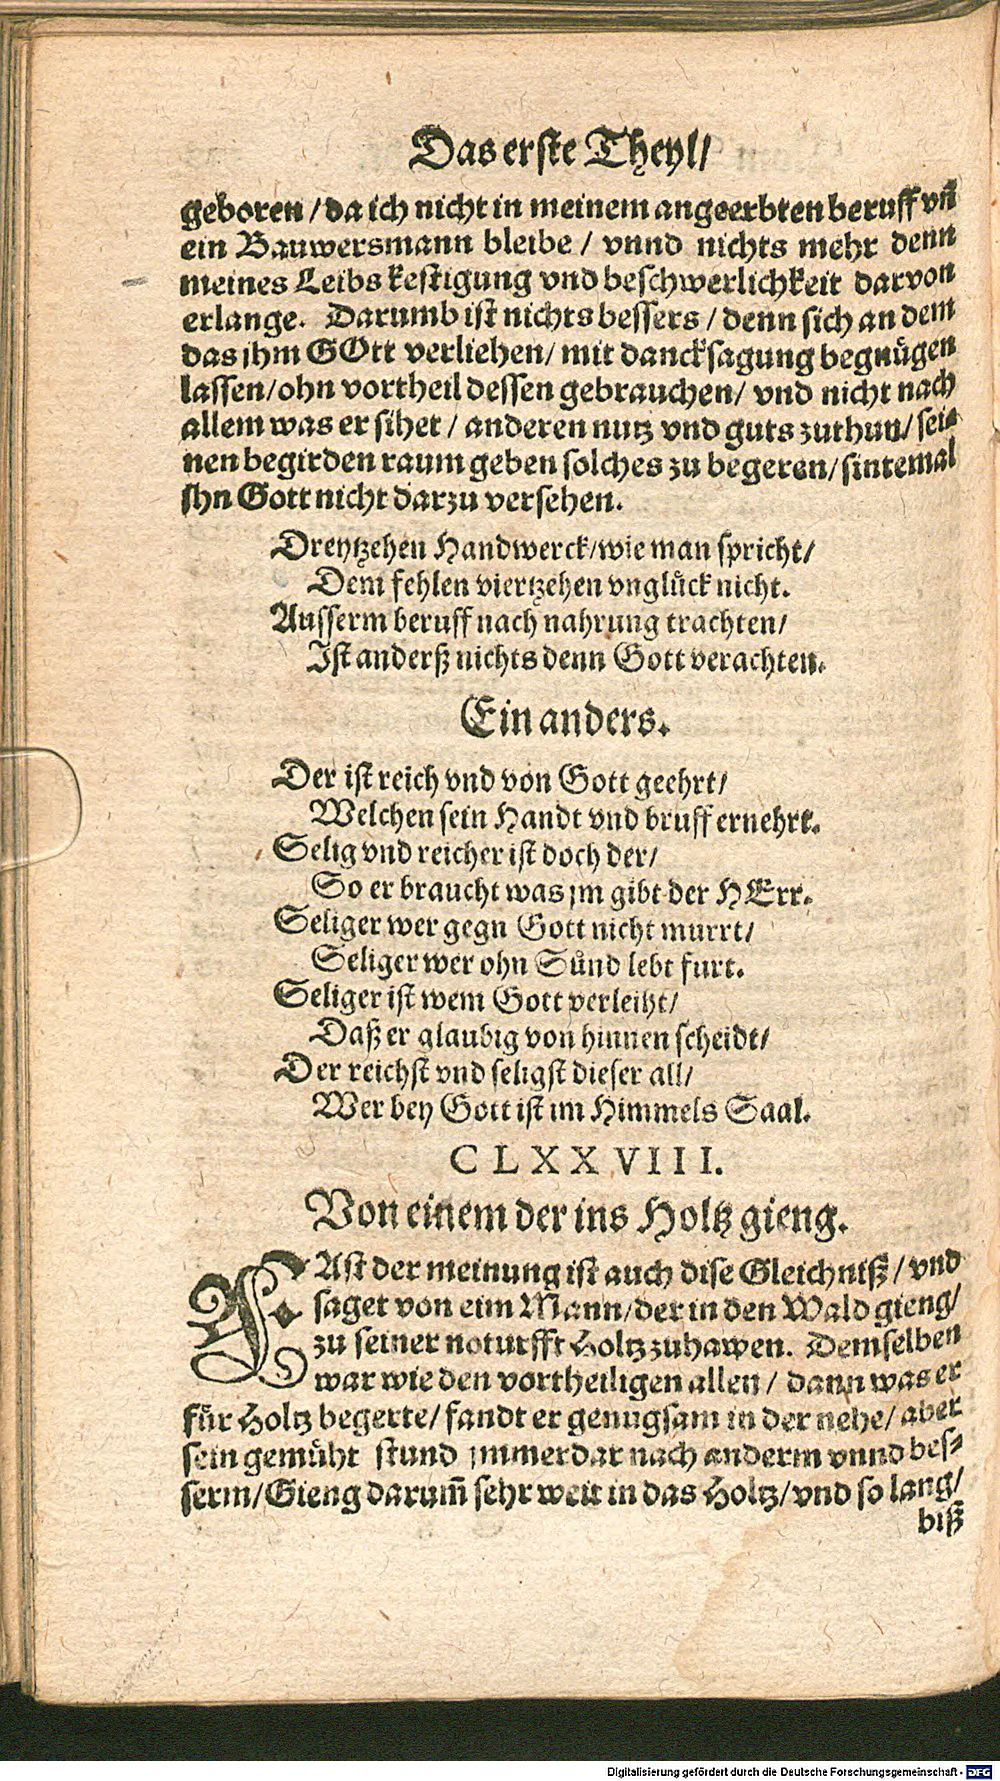 Das erste Theyl/
geboren / da ich nicht in meinem angeerbten beruff vñ
ein Bauwersmann bleibe / vnnd nichts mehr denn
meines Leibs kestigung vnd beschwerlichkeit darvon
erlange. Darumb ist nichts bessers / denn sich an dem
das jhm GOtt verliehen/ mit dancksagung begnuͤgen
lassen/ohn vortheil dessen gebrauchen/ vnd nicht nach
allem was er sihet / anderen nutz vnd guts zuthun/ sei-
nen begirden raum geben solches zu begeren/ sintemal
jhn Gott nicht darzu versehen.
Dreytzehen Handwerck/wie man spricht/
Dem fehlen viertzehen vngluͤck nicht.
Ausserm beruff nach nahrung trachten/
Ist anderß nichts denn Gott verachten.
Ein anders.
Der ist reich vnd von Gott geehrt/
Welchen sein Handt vnd bruff ernehrt.
Selig vnd reicher ist doch der/
So er braucht was jm gibt der HErr.
Seliger wer gegn Gott nicht murrt/
Seliger wer ohn Suͤnd lebt furt.
Seliger ist wem Gott verleiht/
Daß er glaubig von hinnen scheidt/
Der reichst vnd seligst dieser all/
Wer bey Gott ist im Himmels Saal.
CLXXVIII.
Von einem der ins Holtz gieng.
FAst der meinung ist auch dise Gleichniß / vnd
saget von eim Mann/der in den Wald gieng/
zu seiner noturfft Holtz zuhawen. Demselben
war wie den vortheiligen allen / dann was er
fuͤr Holtz begerte/ fandt er genugsam in der nehe/ aber
sein gemuͤht stund jmmerdar nach anderm vnnd bes-
serm/Gieng darum̃ sehr weit in das Holtz/vnd so lang/
biß
Digitalisierung gefördert durch die Deutsche Forschungsgemeinschaft - DFG